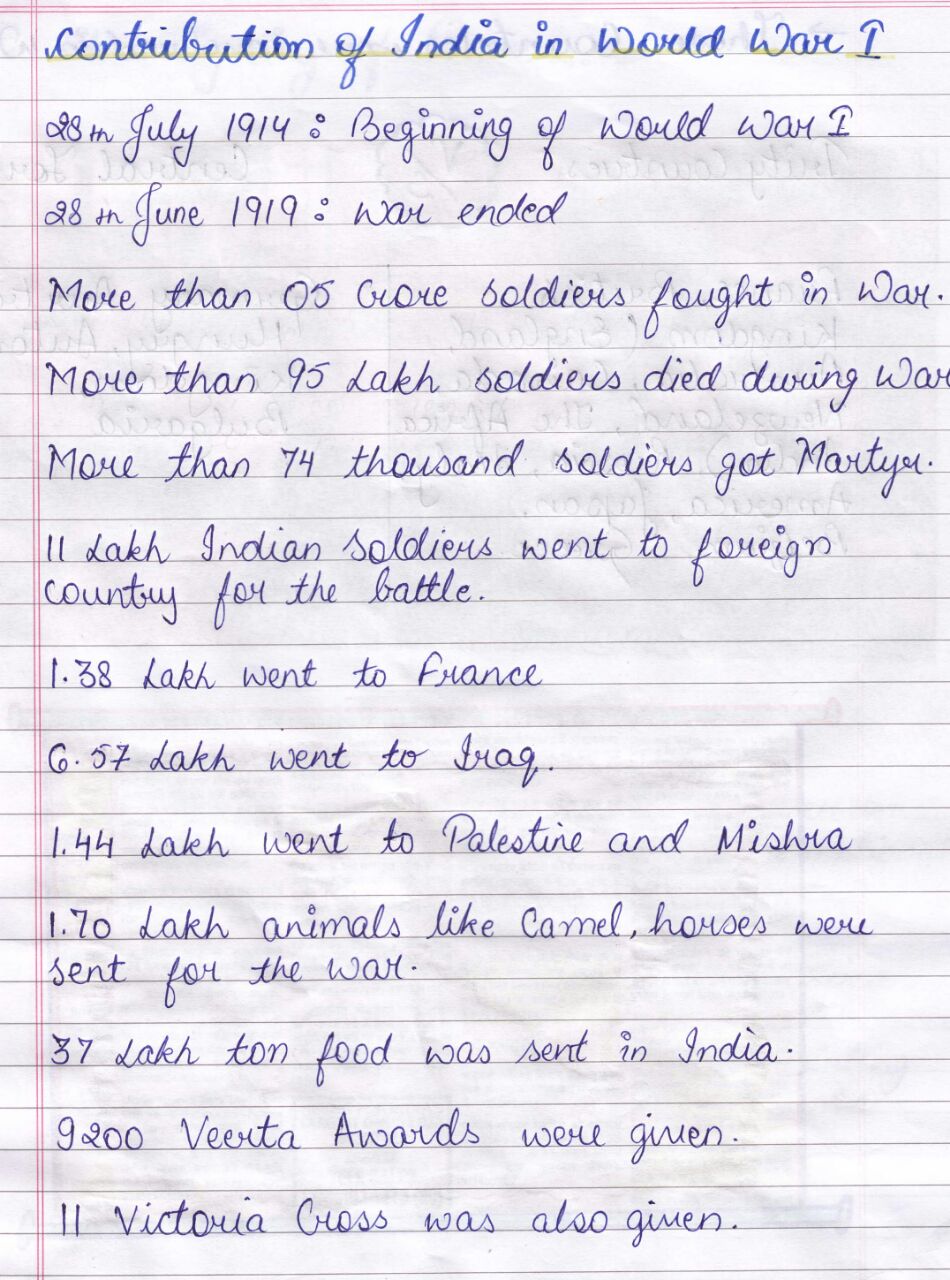 Contribution of India in World War I
28th July 1914 : Beginning of World War I
28th June 1919 : War ended
More than 05 Crore soldiers fought in War.
More than 95 Lakh soldiers died during War
More than 74 thousand soldiers got Martyr.
11 Lakh Indian Soldiers went to foreign
Country for the battle.
1.38 Lakh went to France
6.57 Lakh went to Iraq.
1.44 Lakh went to Palestine and Mishra
1.70 Lakh animals like Camel, horses were
sent for the War.
37 Lakh ton food was sent in India.
9200 Veerta Awards were given.
11 Victoria Cross was also given.